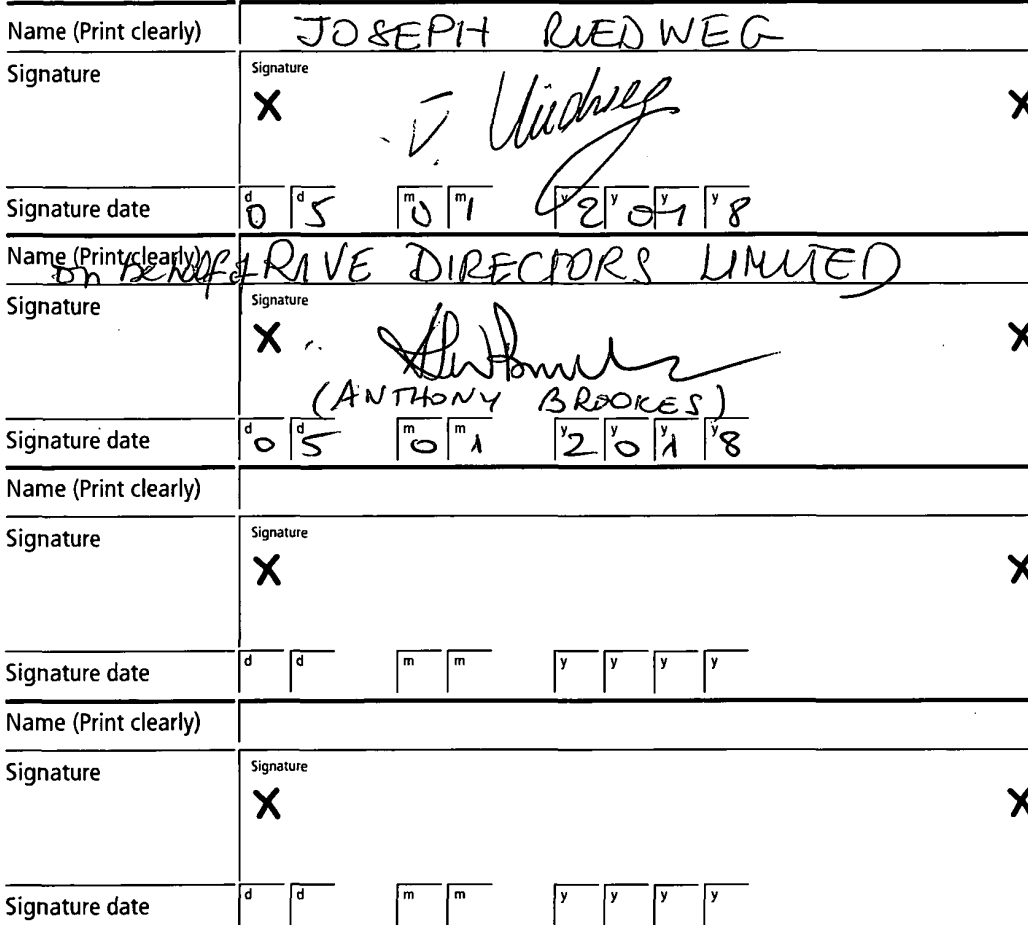 Name (Print clearly) JOSEPH RIEDWEG
Signature Signature
X X
J. Riedweg
Signature date d 0 d 5 m 0 m 1 y 2 y 0 y 1 y 8
Name (Print clearly) on behalf of RIVE DIRECTORS LIMITED
Signature Signature
X X
(ANTHONY BROOKES)
Signature date d 0 d 5 m 0 m 1 y 2 y 0 y 1 y 8
Name (Print clearly)
Signature Signature
X X
Signature date d d m m y y y y
Name (Print clearly)
Signature Signature
X X
Signature date d d m m y y y y